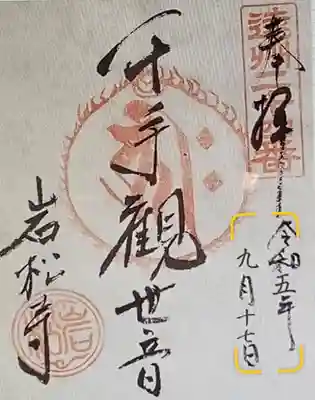 奉拝
令和五年
九月十七日
千手觀世音
岩松寺